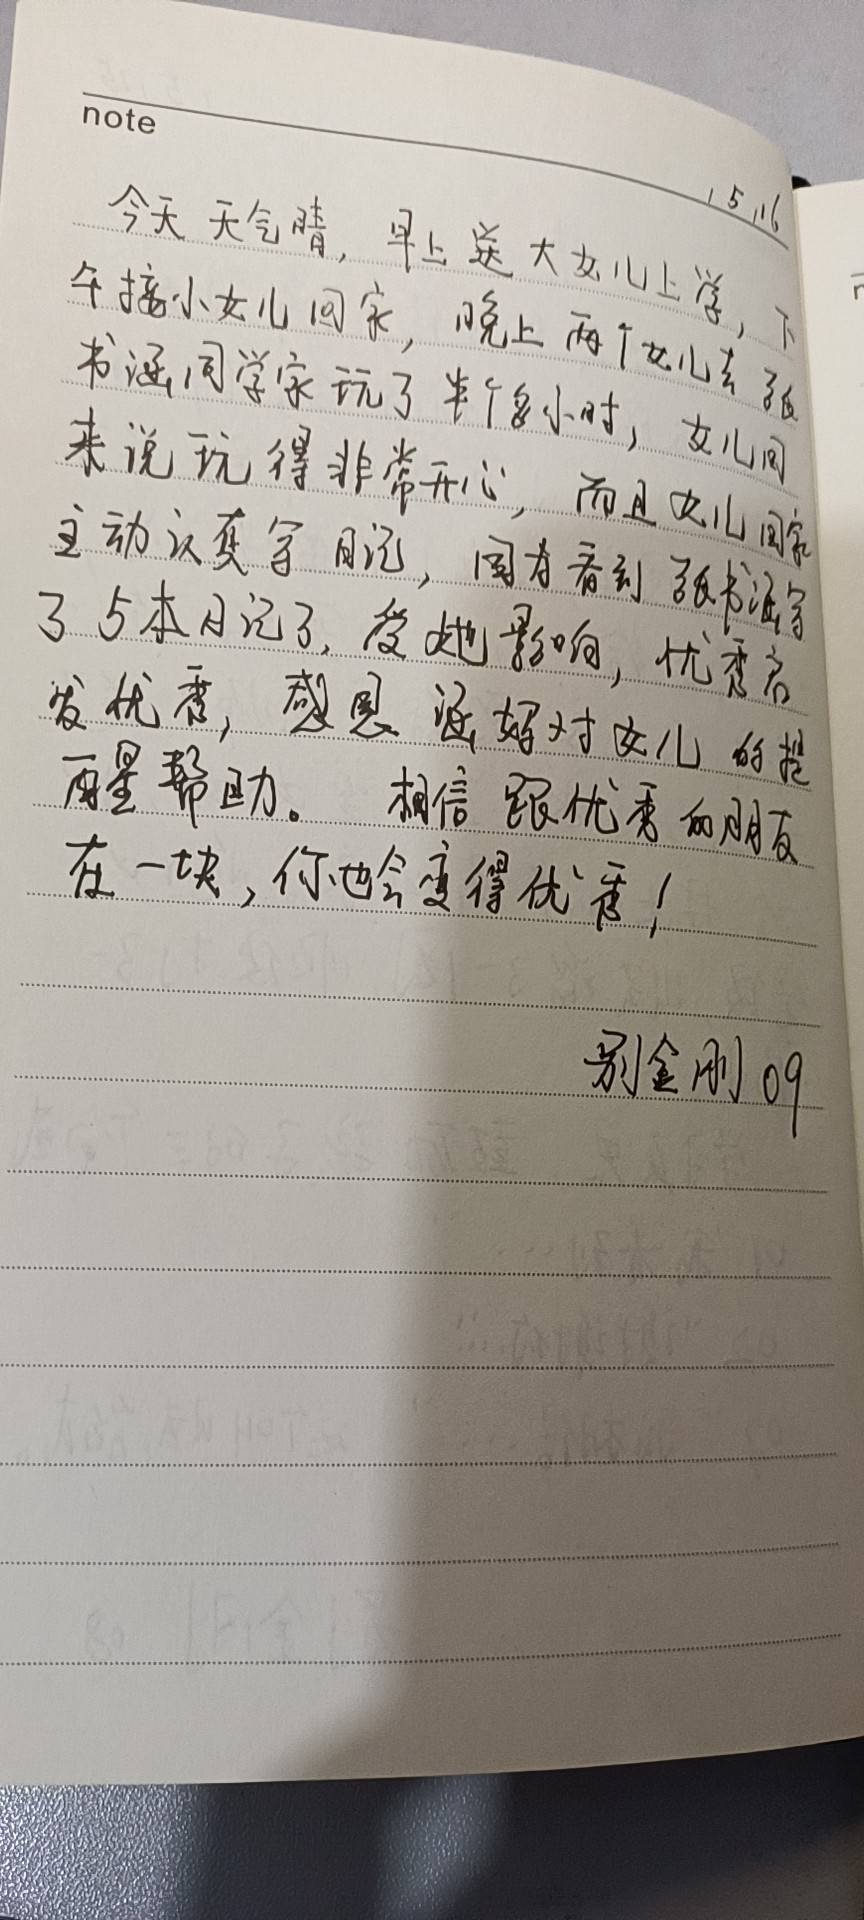 note
15.16
今天 天气晴，早上送大女儿上学，下
午接小女儿回家，晚上两个女儿去张
书涵同学家玩了半个多小时，女儿回
来说玩得非常开心，而且女儿回家
主动认真写日记，因为看到张书涵写
了5本日记了，受她影响，优秀启
发优秀，感恩涵妈对女儿的提
醒帮助。相信跟优秀的朋友
在一块，你也会变得优秀！
别金刚 09